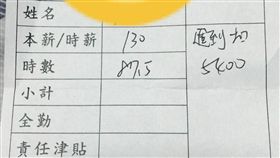 姓名
本薪/時薪 130 遲到扣
時數 87.5 5400
小計
全勤
責任津貼